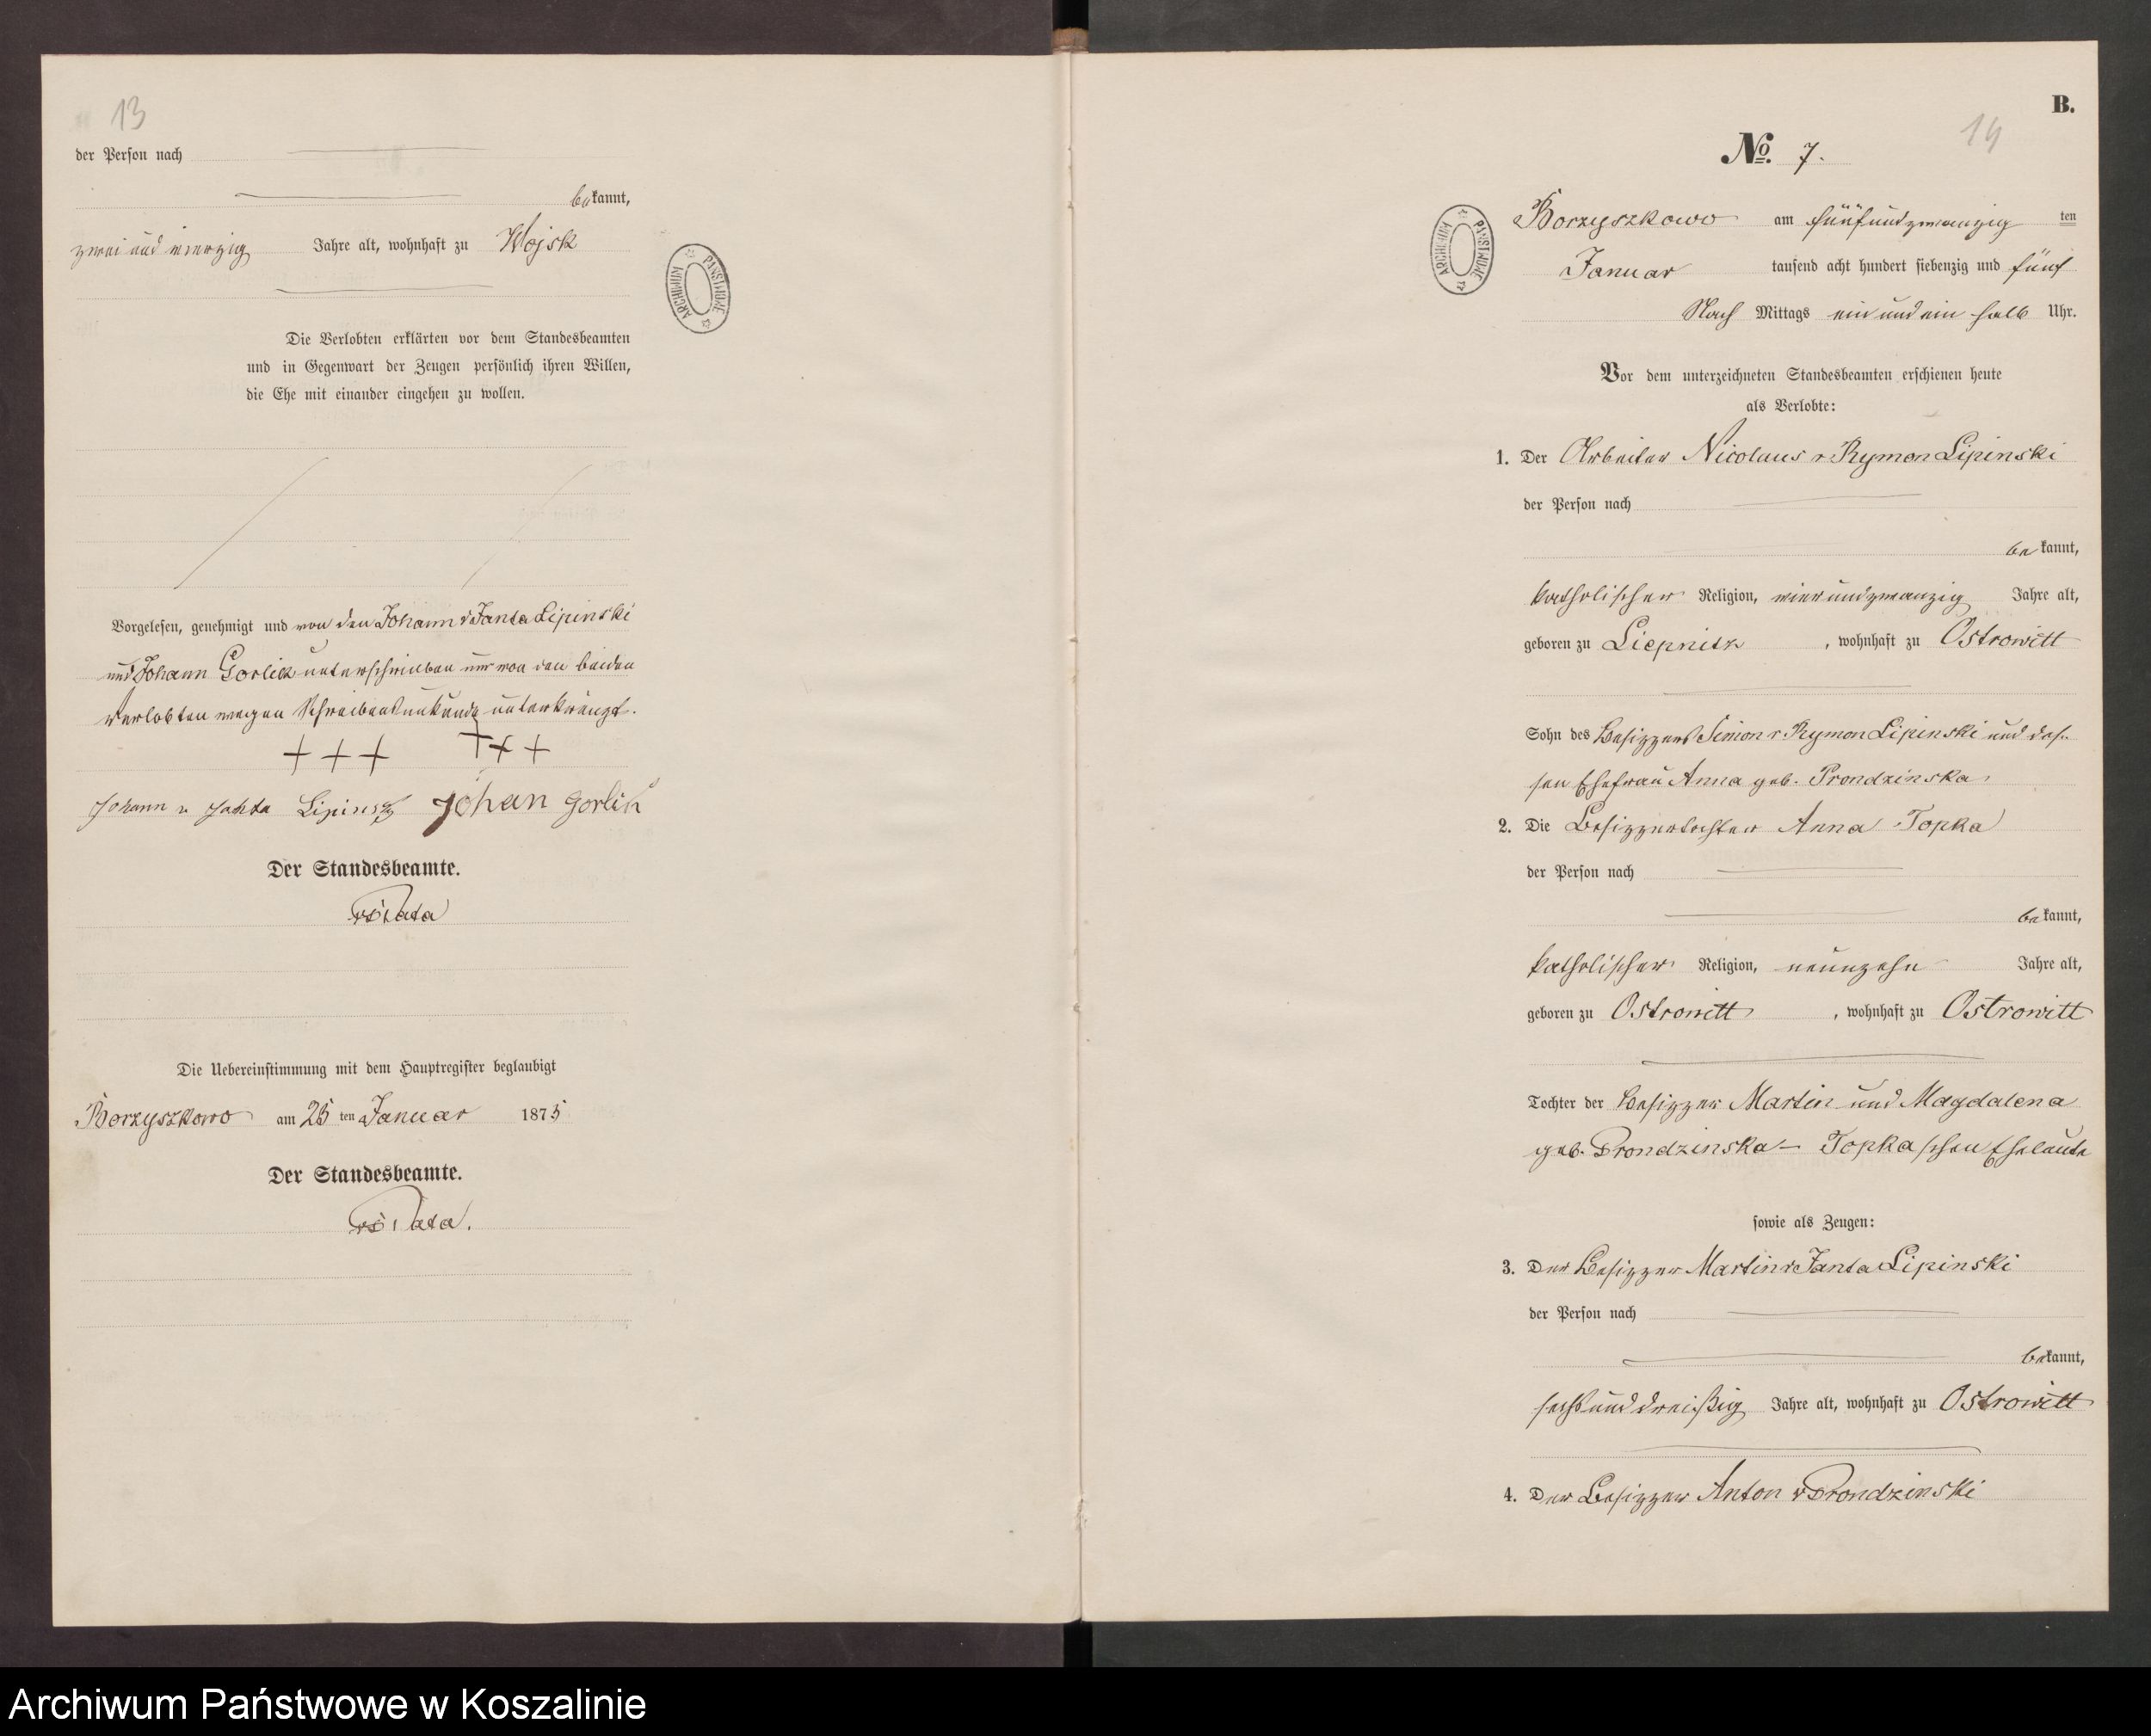 13
der Person nach
bekannt,
zwei und vierzig Jahre alt, wohnhaft zu Wojsk
ARCHIWUM PAŃSTWOWE
Die Verlobten erklärten vor dem Standesbeamten
und in Gegenwart der Zeugen persönlich ihren Willen,
die Ehe mit einander eingehen zu wollen.
Vorgelesen, genehmigt und von den Johann v Janta Lipinski
und Johann Gorlik unterschrieben und von den beiden
Verlobten wegen Schreibensunkunde unterkreuzt.
+ + + + + +
Johann v. Janta Lipinski Johan Gorlik
Der Standesbeamte.
Die Uebereinstimmung mit dem Hauptregister beglaubigt
Borzyszkowo am 25 ten Januar 1875
Der Standesbeamte.
B.
14
No. 7.
ARCHIWUM PAŃSTWOWE
Borzyszkowo am fünfundzwanzig ten
Januar tausend acht hundert siebenzig und fünf
Nach Mittags ein und ein halb Uhr.
Vor dem unterzeichneten Standesbeamten erschienen heute
als Verlobte:
1. Der Arbeiter Nicolaus v Rymon Lipinski
der Person nach
bekannt,
katholischer Religion, vierundzwanzig Jahre alt,
geboren zu Liepnitz, wohnhaft zu Ostrowitt
Sohn des Besitzers Simon v Rymon Lipinski und des-
sen Ehefrau Anna geb. Prondzinska
2. Die Besitzertochter Anna Topka
der Person nach
bekannt,
katholischer Religion, neunzehn Jahre alt,
geboren zu Ostrowitt, wohnhaft zu Ostrowitt
Tochter der Besitzer Martin und Magdalena
geb. Prondzinska – Topkaschen Eheleute
sowie als Zeugen:
3. Der Besitzer Martin v Janta Lipinski
der Person nach
bekannt,
sechsunddreißig Jahre alt, wohnhaft zu Ostrowitt
4. Der Besitzer Anton v Prondzinski
Archiwum Państwowe w Koszalinie